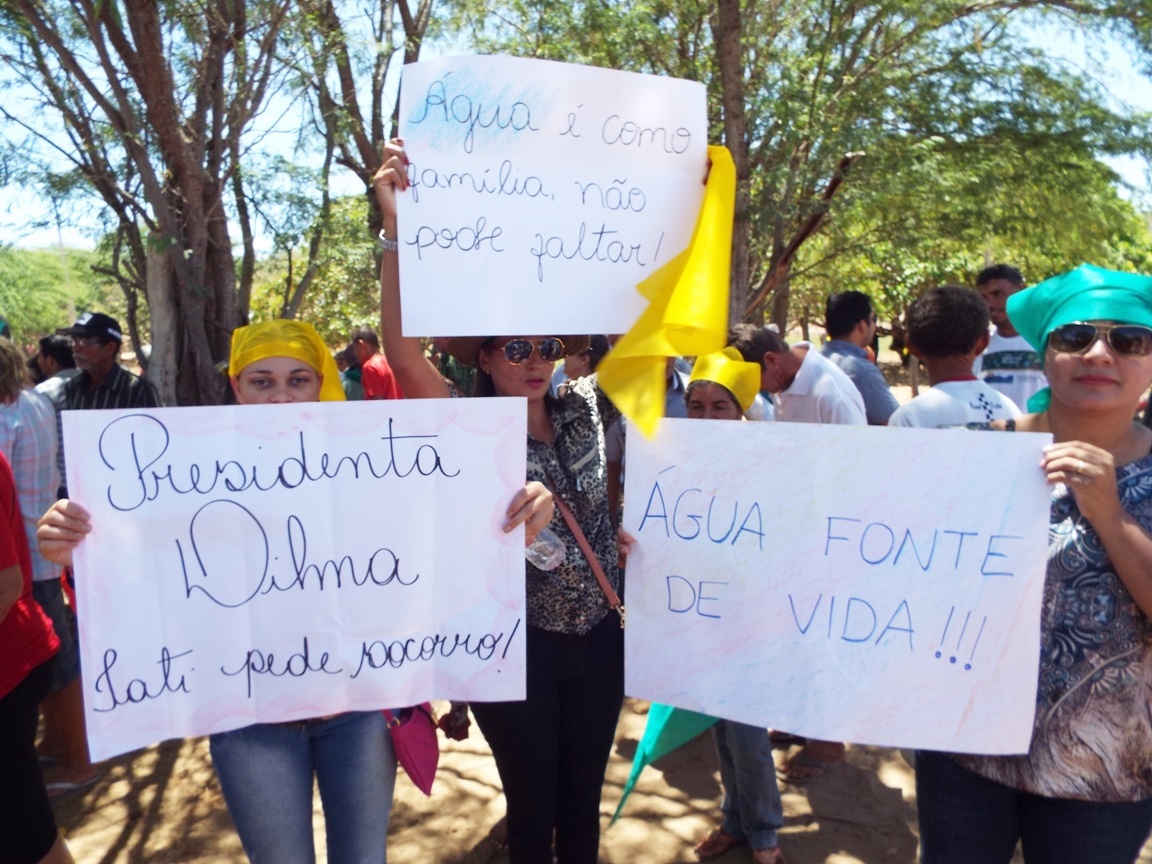 Água é como
família, não
pode faltar!
Presidenta
Dilma
Iati pede socorro!
ÁGUA FONTE
DE VIDA!!!